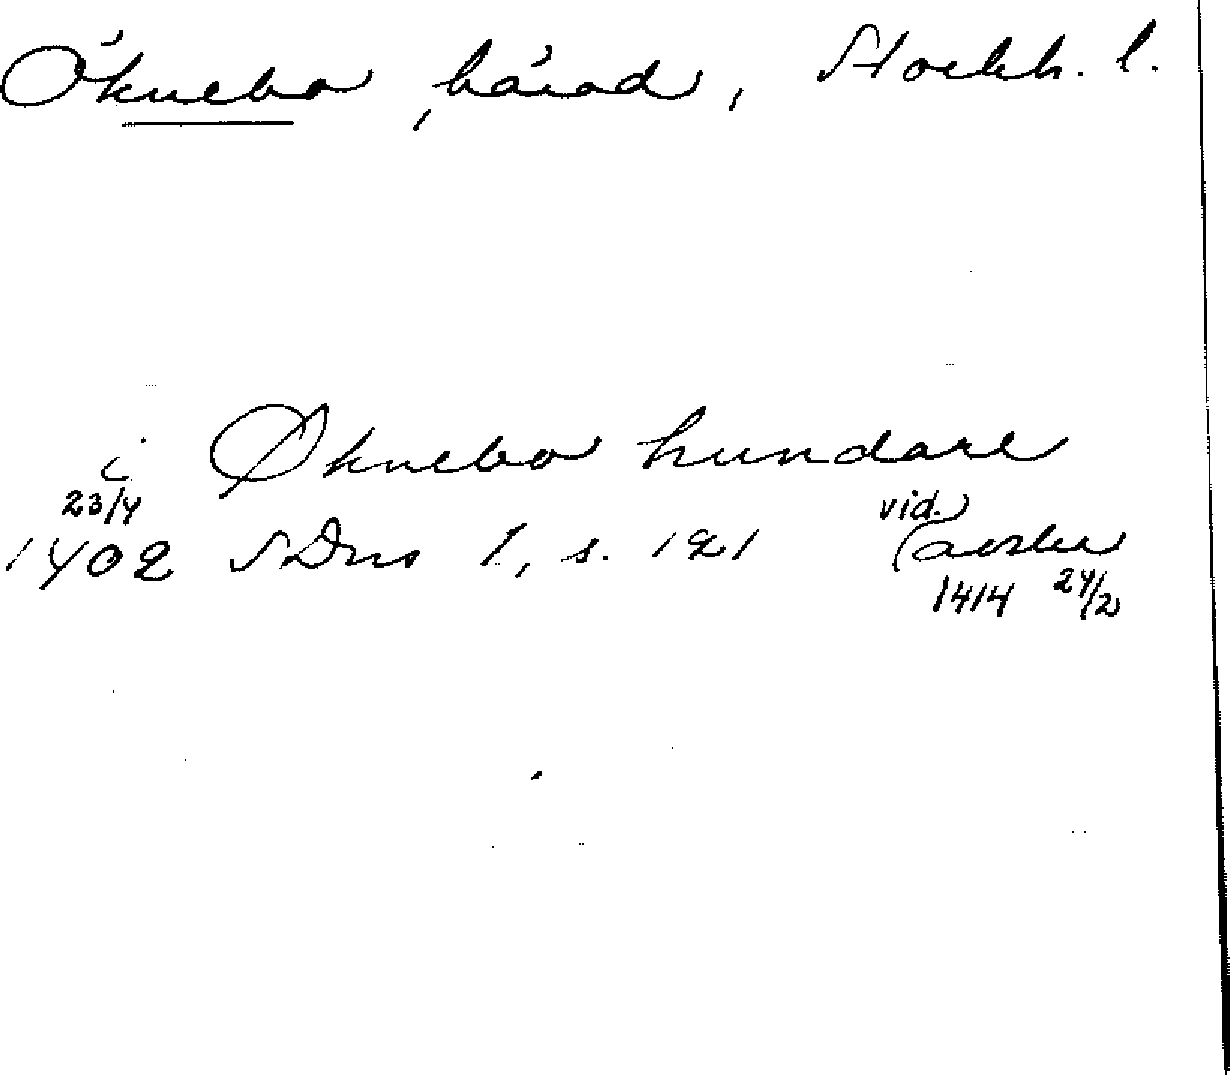 Öknebo härad, Stockh. l.
i Øknebo hundare
23/4 vid.
1402 SDns 1, s. 121 (avskr
1414 24/2